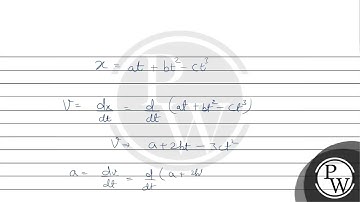 x = at + bt² - ct³
V = dx/dt = d/dt (at + bt² - ct³)
V = a + 2bt - 3ct²
a = dv/dt = d/dt (a + 2b
P
W